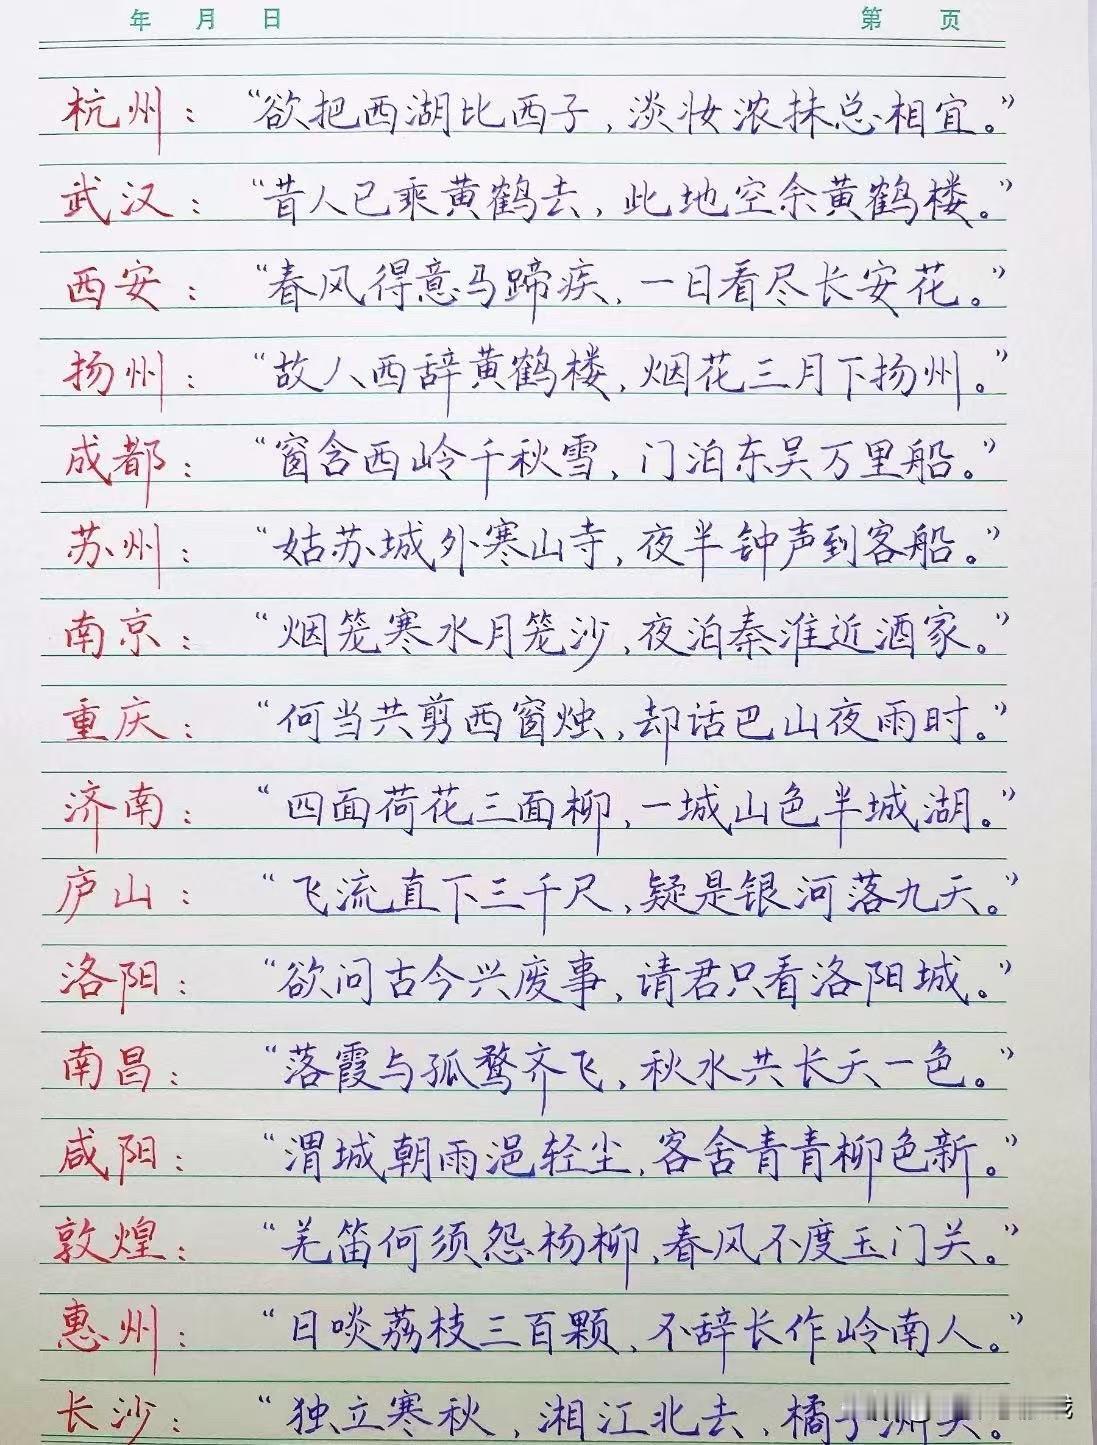 年 月 日 第 页
杭州：“欲把西湖比西子，淡妆浓抹总相宜。”
武汉：“昔人已乘黄鹤去，此地空余黄鹤楼。”
西安：“春风得意马蹄疾，一日看尽长安花。”
扬州：“故人西辞黄鹤楼，烟花三月下扬州。”
成都：“窗含西岭千秋雪，门泊东吴万里船。”
苏州：“姑苏城外寒山寺，夜半钟声到客船。”
南京：“烟笼寒水月笼沙，夜泊秦淮近酒家。”
重庆：“何当共剪西窗烛，却话巴山夜雨时。”
济南：“四面荷花三面柳，一城山色半城湖。”
庐山：“飞流直下三千尺，疑是银河落九天。”
洛阳：“欲问古今兴废事，请君只看洛阳城。”
南昌：“落霞与孤鹜齐飞，秋水共长天一色。”
咸阳：“渭城朝雨浥轻尘，客舍青青柳色新。”
敦煌：“羌笛何须怨杨柳，春风不度玉门关。”
惠州：“日啖荔枝三百颗，不辞长作岭南人。”
长沙：“独立寒秋，湘江北去，橘子洲头。